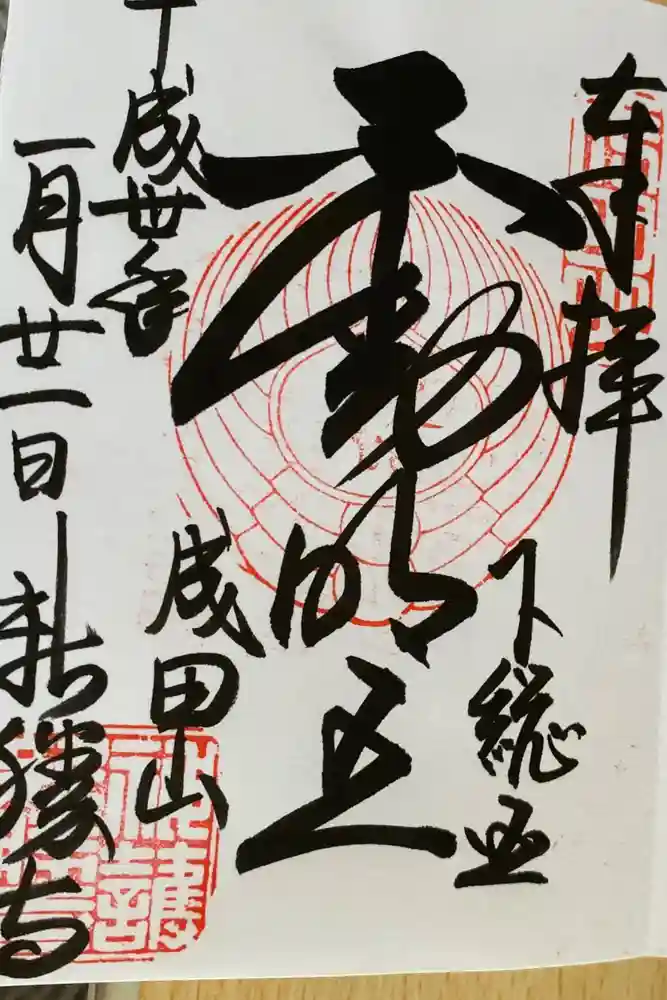 奉拝
下総国
不動明王
成田山
新勝寺
平成卅年
一月廿一日